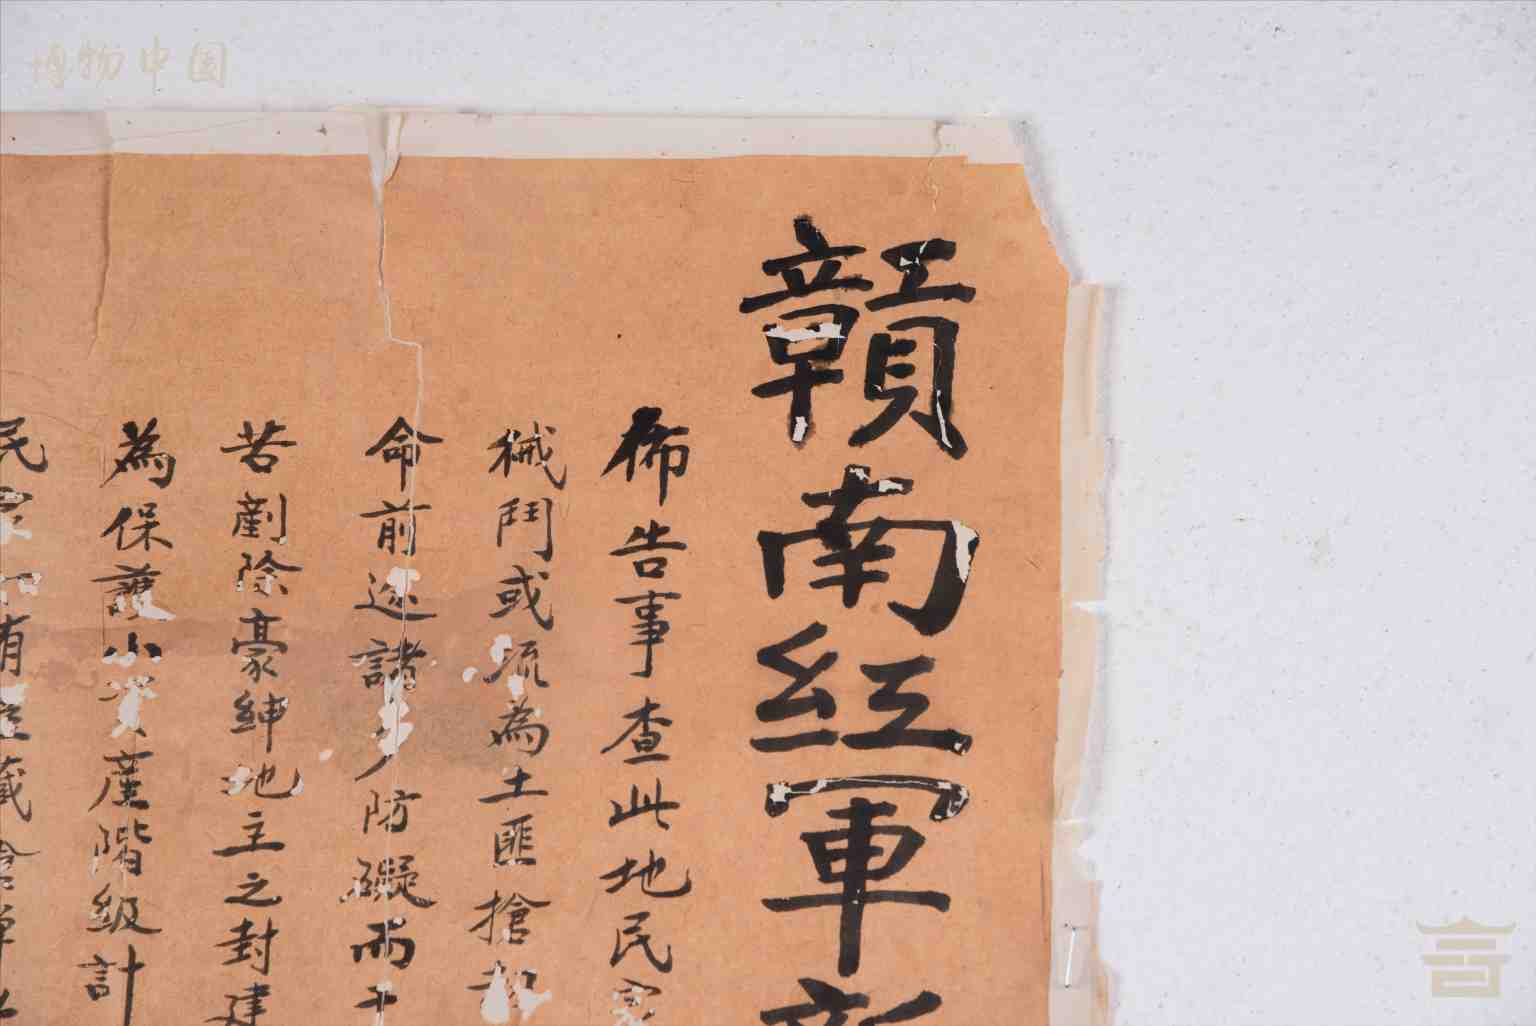 博物中国
赣南紅軍
佈告事查此地民家
械鬥或流為土匪搶
命前途諸多防礙而
苦剷除豪紳地主之封建
為保護小資產階級計
民家如有藏